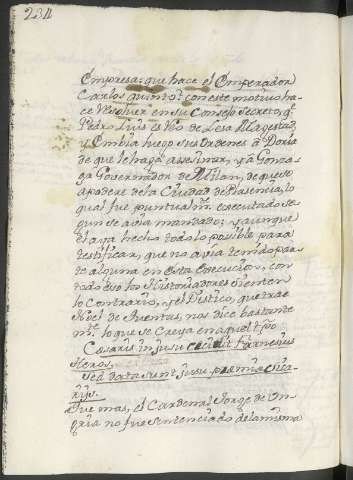 234
Empresa; que hace el Emperador
Carlos quinto; con este motivo ha-
ce resolver en su Consejo Secreto, q.e
Pedro Luis es Reo de Lesa Magestad,
y embia luego sus ordenes à Doria
de que le haga assesinar, y à Gonza-
ga Governador de Milan, de que se
apodere de la Ciudad de Plasencia, lo
qual fue puntualm.te executado se-
gun se avia mandado; y aunque
el aya hecho todo lo posible para
testificar, que no avia tenido par-
te alguna en esta execucion, con
todo eso los Historiadores sienten
lo contrario, y el Distico, que trae
Noel de Aventus, nos dice bastante
m.te lo que se creya en aquel tpo
Cæsaris in jusu cecidit Farnesius
Heros,
Sed data sunt jussu præmia sica-
rijs.
Que mas, el Cardenal Jorge de Un-
gria no fue sentenciado de la misma